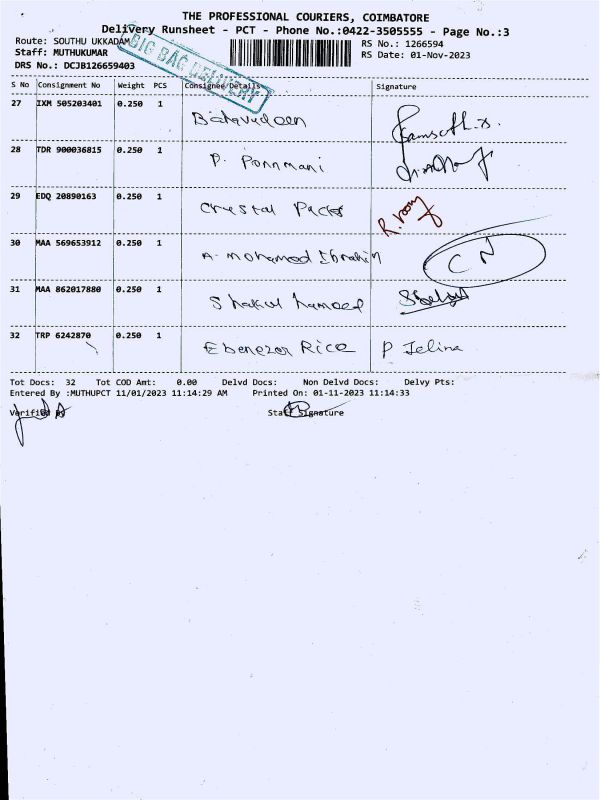 THE PROFESSIONAL COURIERS, COIMBATORE
Delivery Runsheet - PCT - Phone No.:0422-3505555 - Page No.:3
Route: SOUTHU UKKADAM
RS No.: 1266594
Staff: MUTHUKUMAR
RS Date: 01-Nov-2023
DRS No.: DCJB126659403
BIG BAG DELIVERY
S No Consignment No Weight PCS Consignee/Details Signature
27 IXM 505203401 0.250 1 Bahavudeen
28 TDR 900036815 0.250 1 P. Ponnmani
29 EDQ 20890163 0.250 1 Crystal Packs R. roomy
30 MAA 569653912 0.250 1 A. Mohamed Ibrahim CN
31 MAA 862017880 0.250 1 Shakul hameed
32 TRP 6242870 0.250 1 Ebenezor Rice P Jelina
Tot Docs: 32 Tot COD Amt: 0.00 Delvd Docs: Non Delvd Docs: Delvy Pts:
Entered By :MUTHUPCT 11/01/2023 11:14:29 AM Printed On: 01-11-2023 11:14:33
Verified By Staff Signature